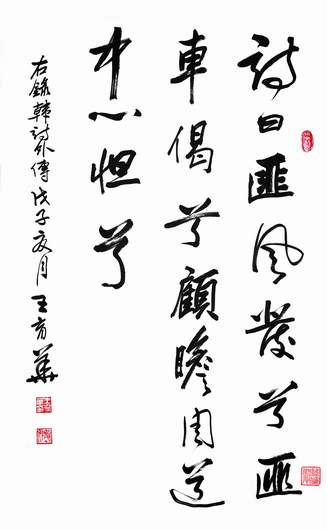 詩曰匪風發兮匪
車偈兮顧瞻周道
中心怛兮
右錄韓詩外傳戊子月王華